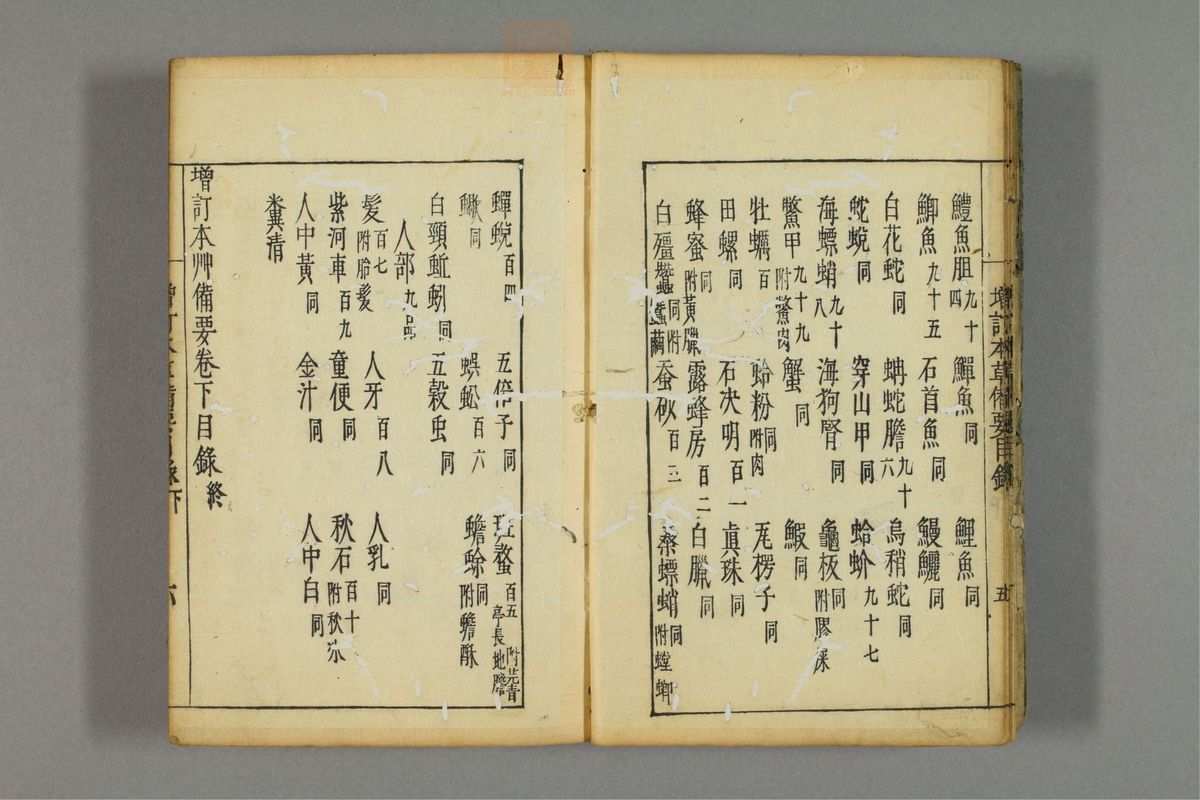 增訂本草備要目錄 五
鱧魚胆九十四 鱓魚同 鯉魚同
鯽魚九十五 石首魚同 鰻鱺同
白花蛇同 蚺蛇膽九十六 烏稍蛇同
蛇蛻同 穿山甲同 蛤蚧九十七
海螵蛸九十八 海狗腎同 龜板同附膠
鱉甲九十九附鱉肉 蟹同 鰕同
牡蠣百 蛤粉同附肉 瓦楞子同
田螺同 石决明百一 眞珠同
蜂蜜同附黃臘 露蜂房百二 白臘同
白殭蠶同附蠶繭 蚕砂百三 桑螵蛸同附螳螂
蟬蛻百四 五倍子同 斑螯百五附芫青亭長地膽
蝎同 蜈蚣百六 蟾蜍同附蟾酥
白頸蚯蚓同 五穀虫同
人部九品
髮百七附胎髮 人牙百八 人乳同
紫河車百九 童便同 秋石百十附秋氷
人中黃同 金汁同 人中白同
糞清
增訂本艸備要卷下目錄終